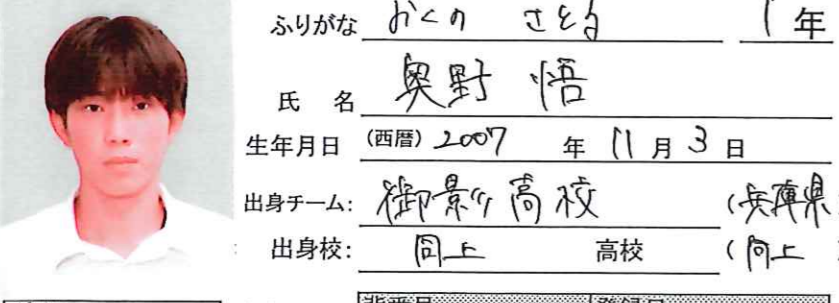 ふりがな おくの さとる 1年
氏 名 奥野 悟
生年月日 (西暦) 2007 年 11 月 3 日
出身チーム: 御影高校 (兵庫県
出身校: 同上 高校 (同上
背番号 登録日